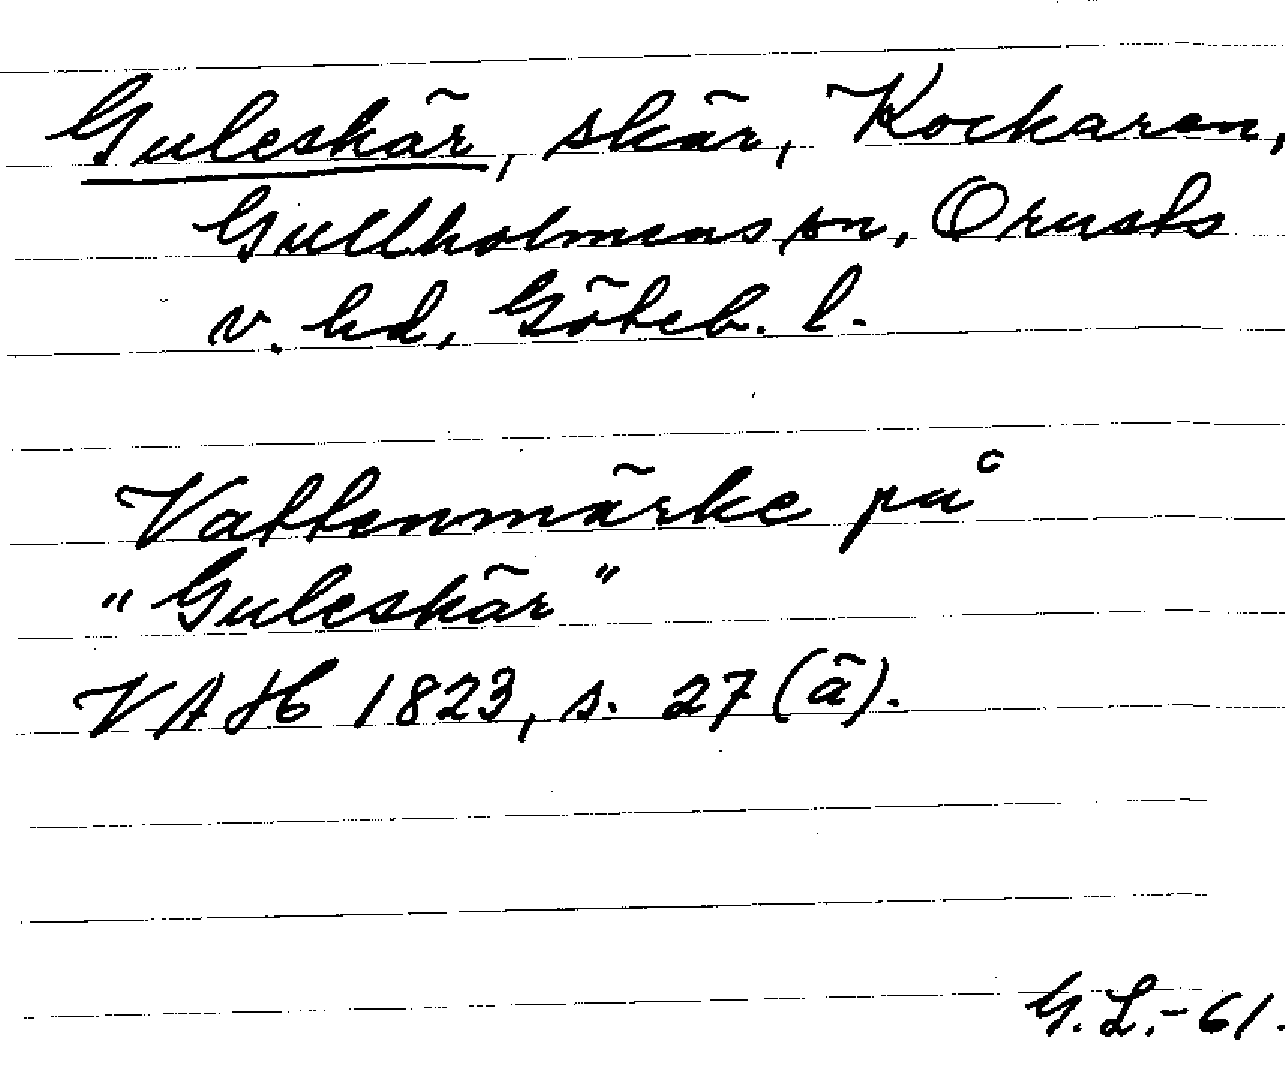 Guleskär, skär, Kockaren,
Gullholmens sn, Orusts
v. hd, Göteb. l.
Vattenmärke på
"Guleskär"
VAH 1823, s. 27 (ä).
G. L. - 61.